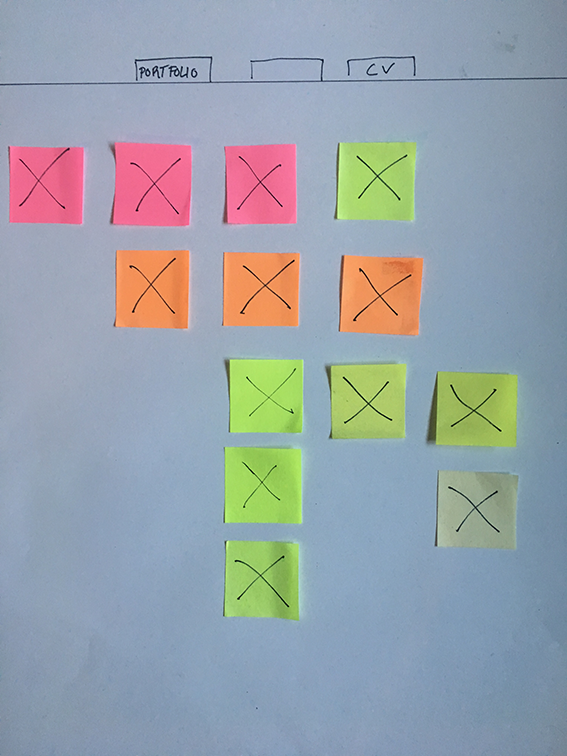 PORTFOLIO
CV